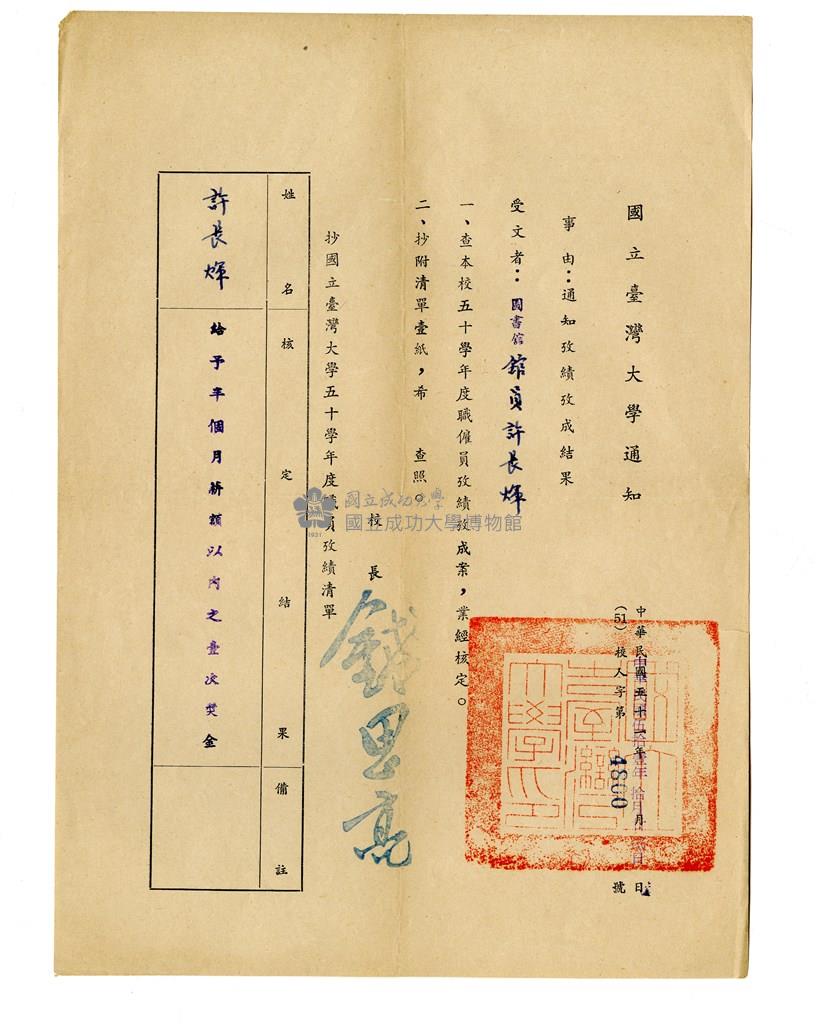 國立臺灣大學通知
中華民國五十一年　月　日
中華民國伍拾壹年拾月　日
(51)校人字第4800號
事由：通知攷績攷成結果
受文者：圖書館館員許長煇
一、查本校五十學年度職僱員攷績攷成案，業經核定。
二、抄附清單壹紙，希　查照。
校長　錢思亮
抄國立臺灣大學五十學年度職員攷績清單
姓名　核定結果　備註
許長煇　給予半個月薪額以內之壹次獎金
國立成功大學
國立成功大學博物館
1931